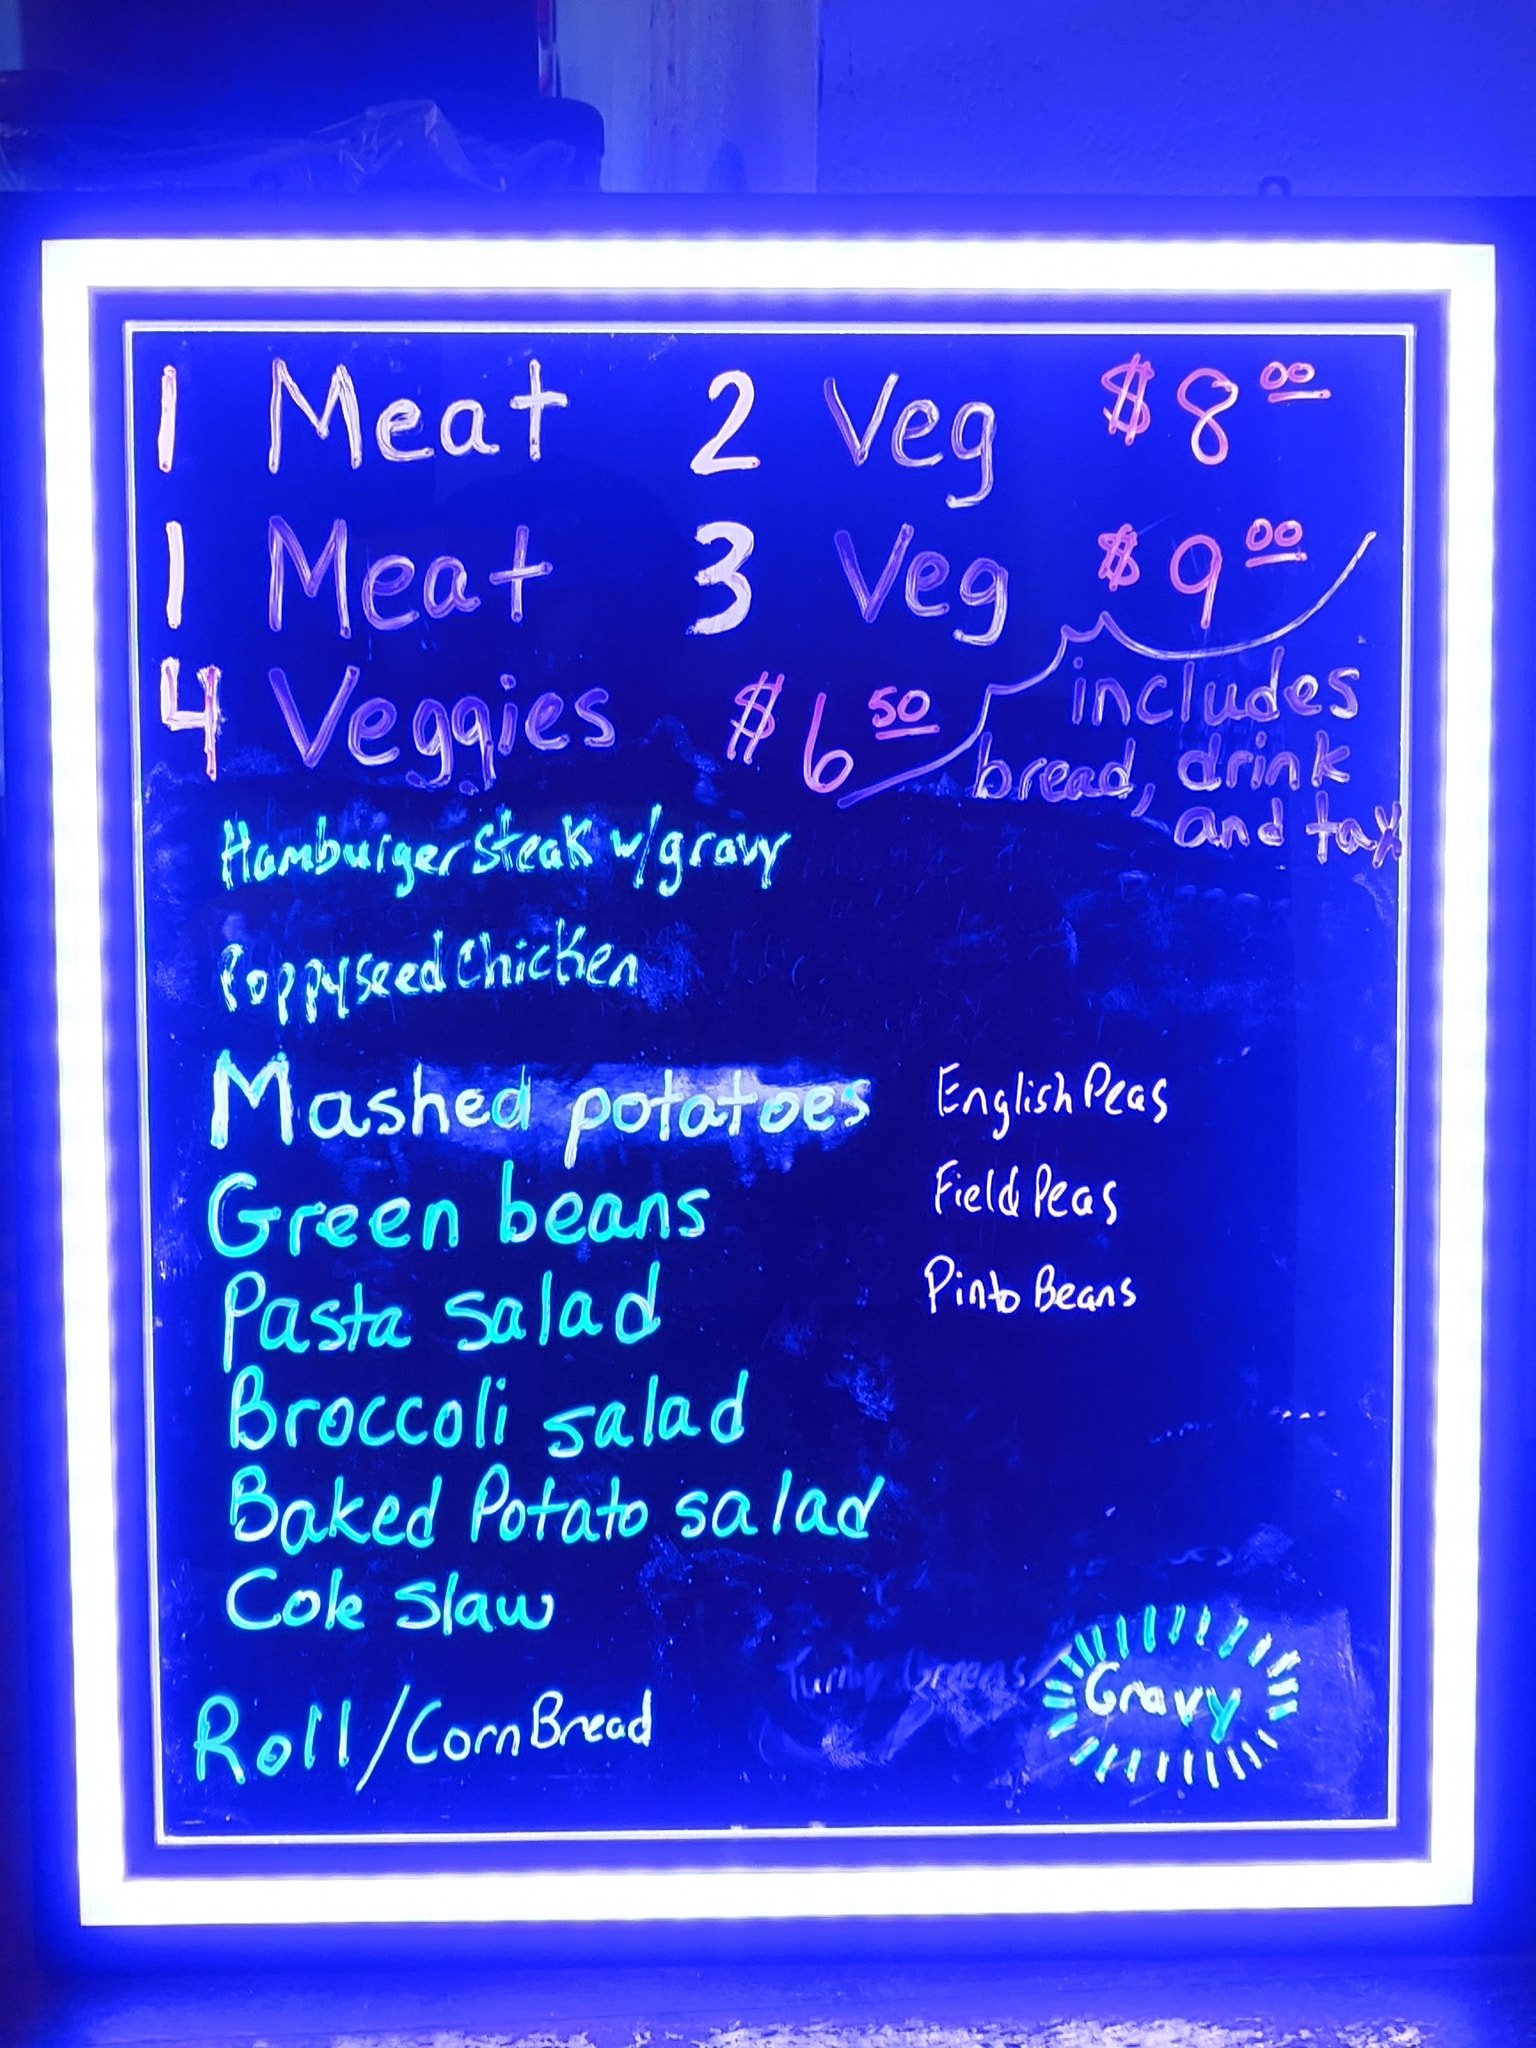 1 Meat 2 Veg $8.00
1 Meat 3 Veg $9.00
4 Veggies $6.50
includes
bread, drink
and tax
Hamburger Steak w/gravy
Poppyseed Chicken
Mashed potatoes
Green beans
Pasta salad
Broccoli salad
Baked Potato salad
Cole Slaw
English Peas
Field Peas
Pinto Beans
Turnip Greens
Gravy
Roll/Corn Bread